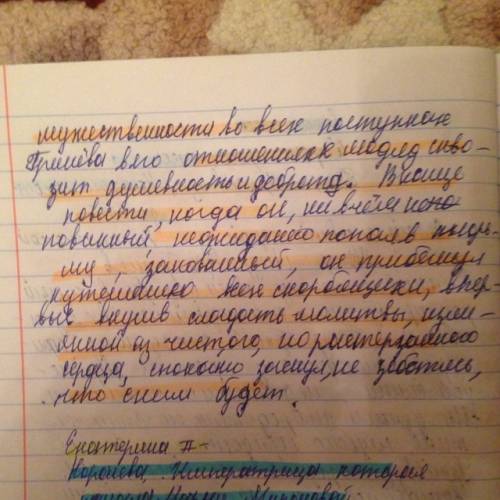 мужественности во всех поступках
Гринёва в его отношениях к людям скво-
зит душевность и доброта. В конце
повести, когда он, ни в чём непо
повинный, неожиданно попал в тюрь-
му, закованный, он прибегнул
к утешению всех скорбящих, впер-
вые вкусив сладость молитвы, изли-
янной из чистого, но растерзанного
сердца, спокойно заснул, не заботясь,
что с ним будет.
Екатерина II -
Королева, Императрица которая